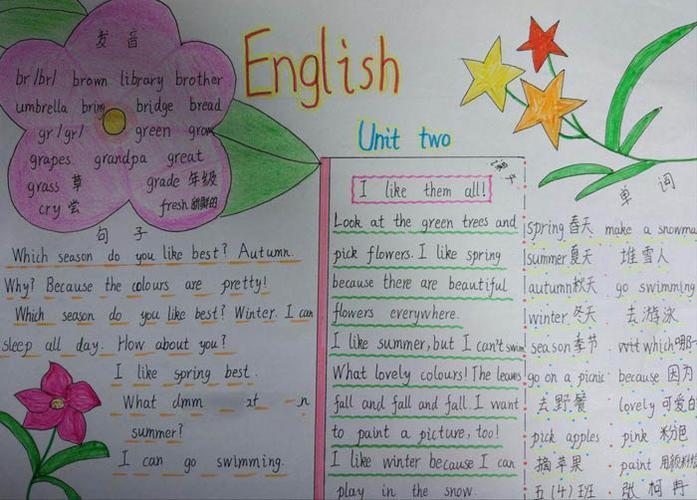 English
Unit two
发音
br /br/ brown library brother
umbrella brim bridge bread
gr /gr/ green grow
grapes grandpa great
grass 草 grade 年级
cry 尝 fresh 新鲜的
句子
Which season do you like best? Autumn.
Why? Because the colours are pretty!
Which season do you like best? Winter. I can
sleep all day. How about you?
I like spring best.
What
summer?
I can go swimming.
课文
I like them all!
Look at the green trees and
pick flowers. I like spring
because there are beautiful
flowers everywhere.
I like summer, but I can't swim
What lovely colours! The leaves
fall and fall and fall. I want
to paint a picture, too!
I like winter because I can
play in the snow.
单词
spring 春天 make a snowma
summer 夏天 堆雪人
autumn 秋天 go swimming
winter 冬天 去游泳
season 季节 which 哪一
go on a picnic because 因为
去野餐 lovely 可爱的
pick apples pink 粉
摘苹果 paint
五(4)班 张柯冉